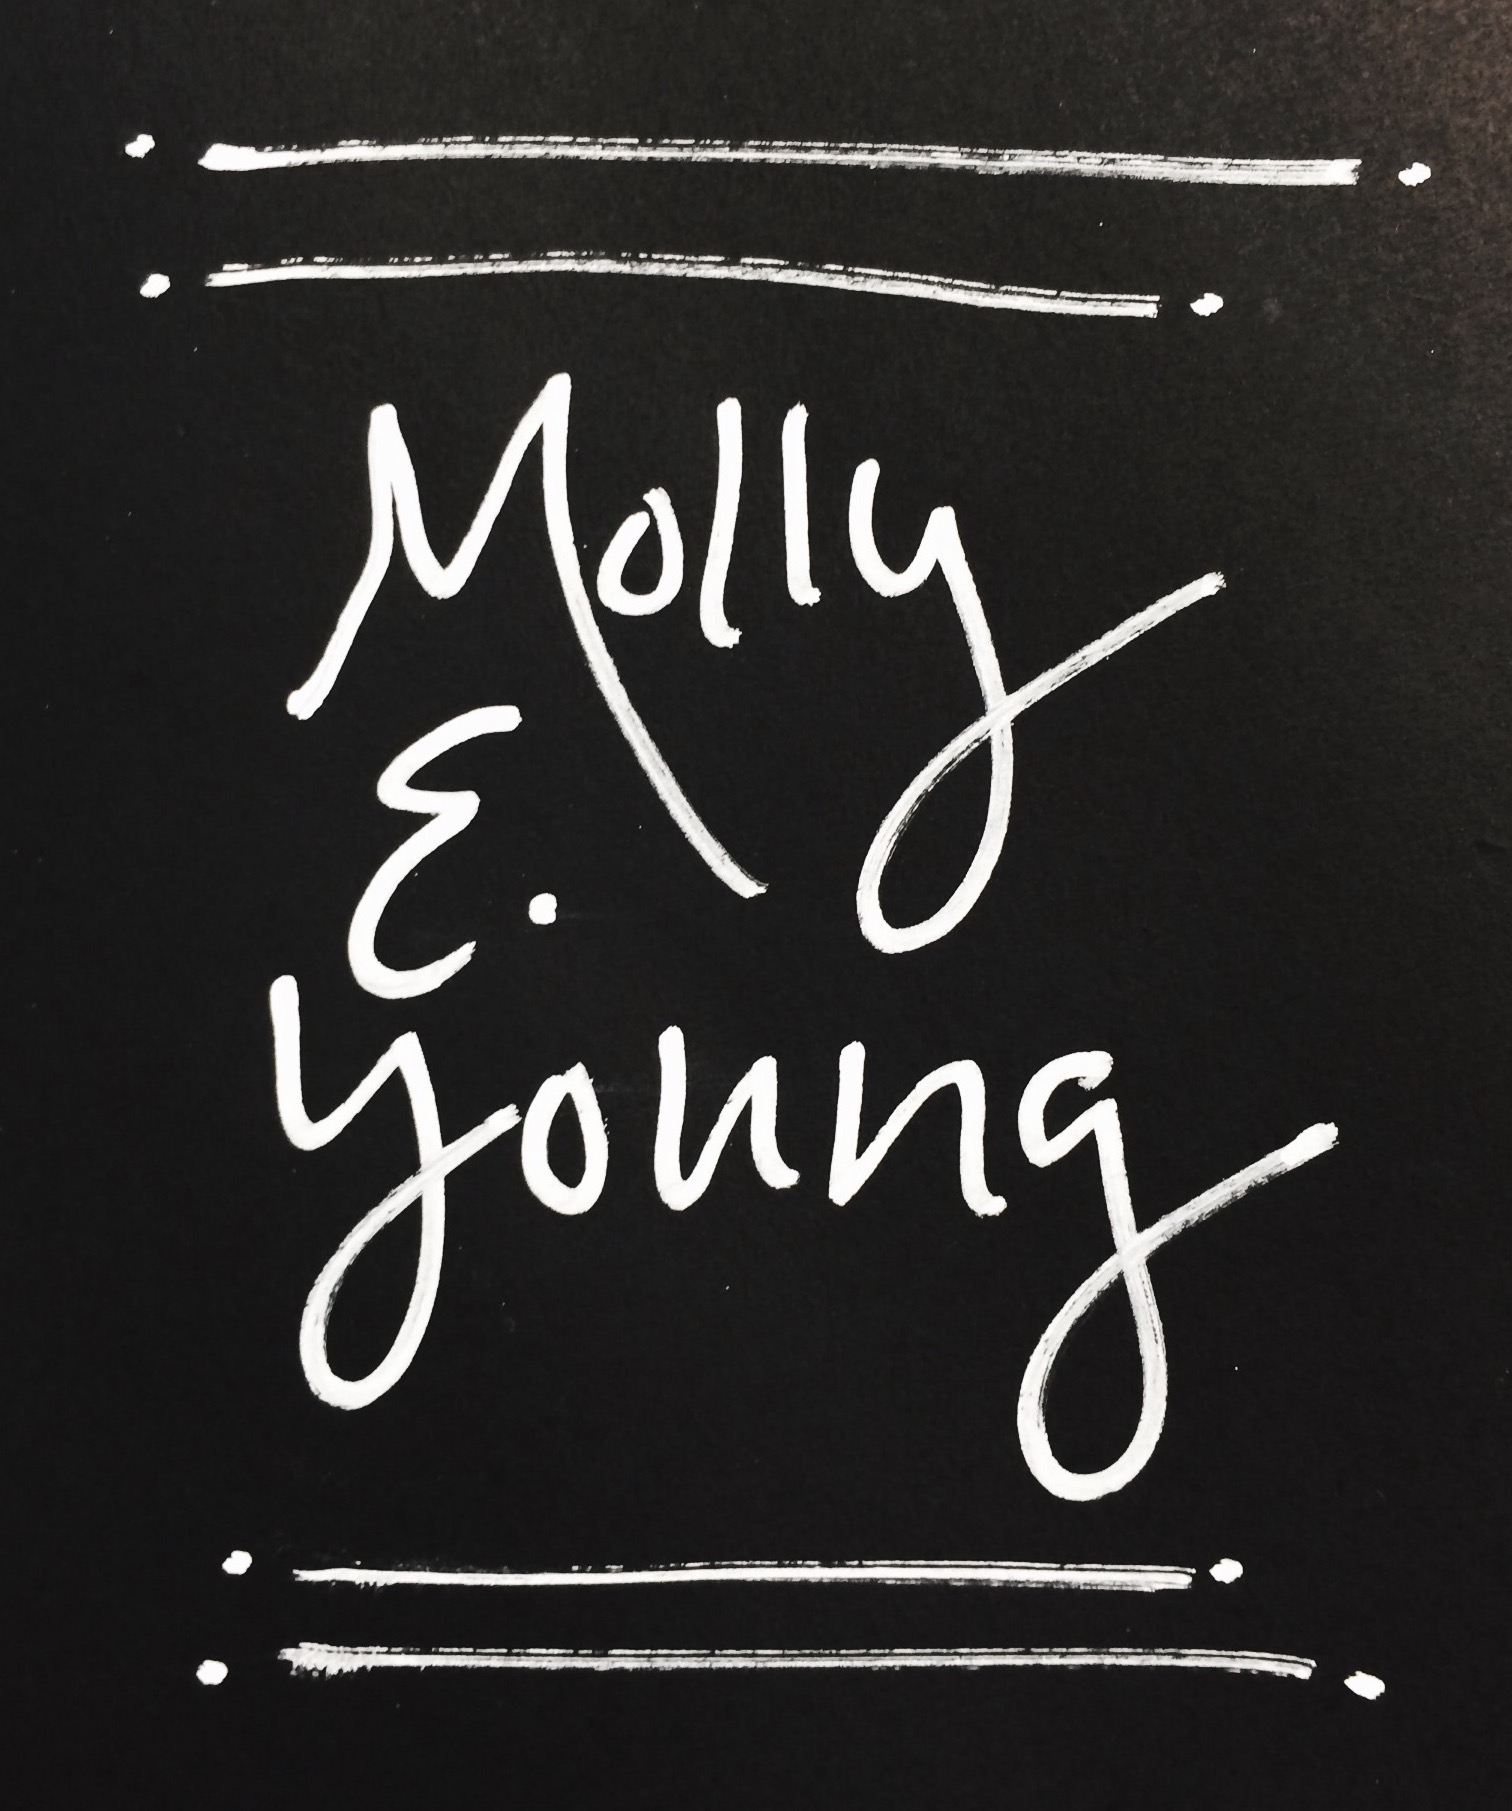 Molly
E.
Young